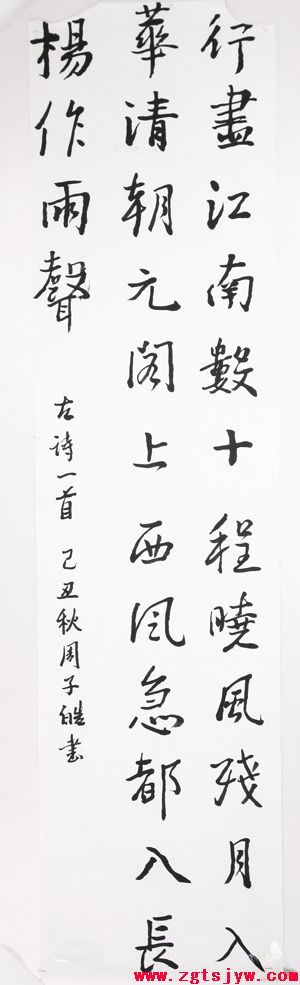 行盡江南數十程曉風殘月入
華清朝元閣上西風急都入長
楊作雨聲
古诗一首 己丑秋周子皓书
www.zgtsjyw.com